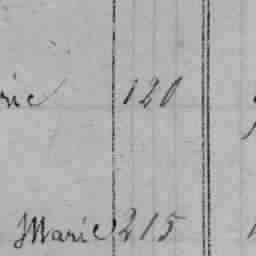 rie 120
Marie 215